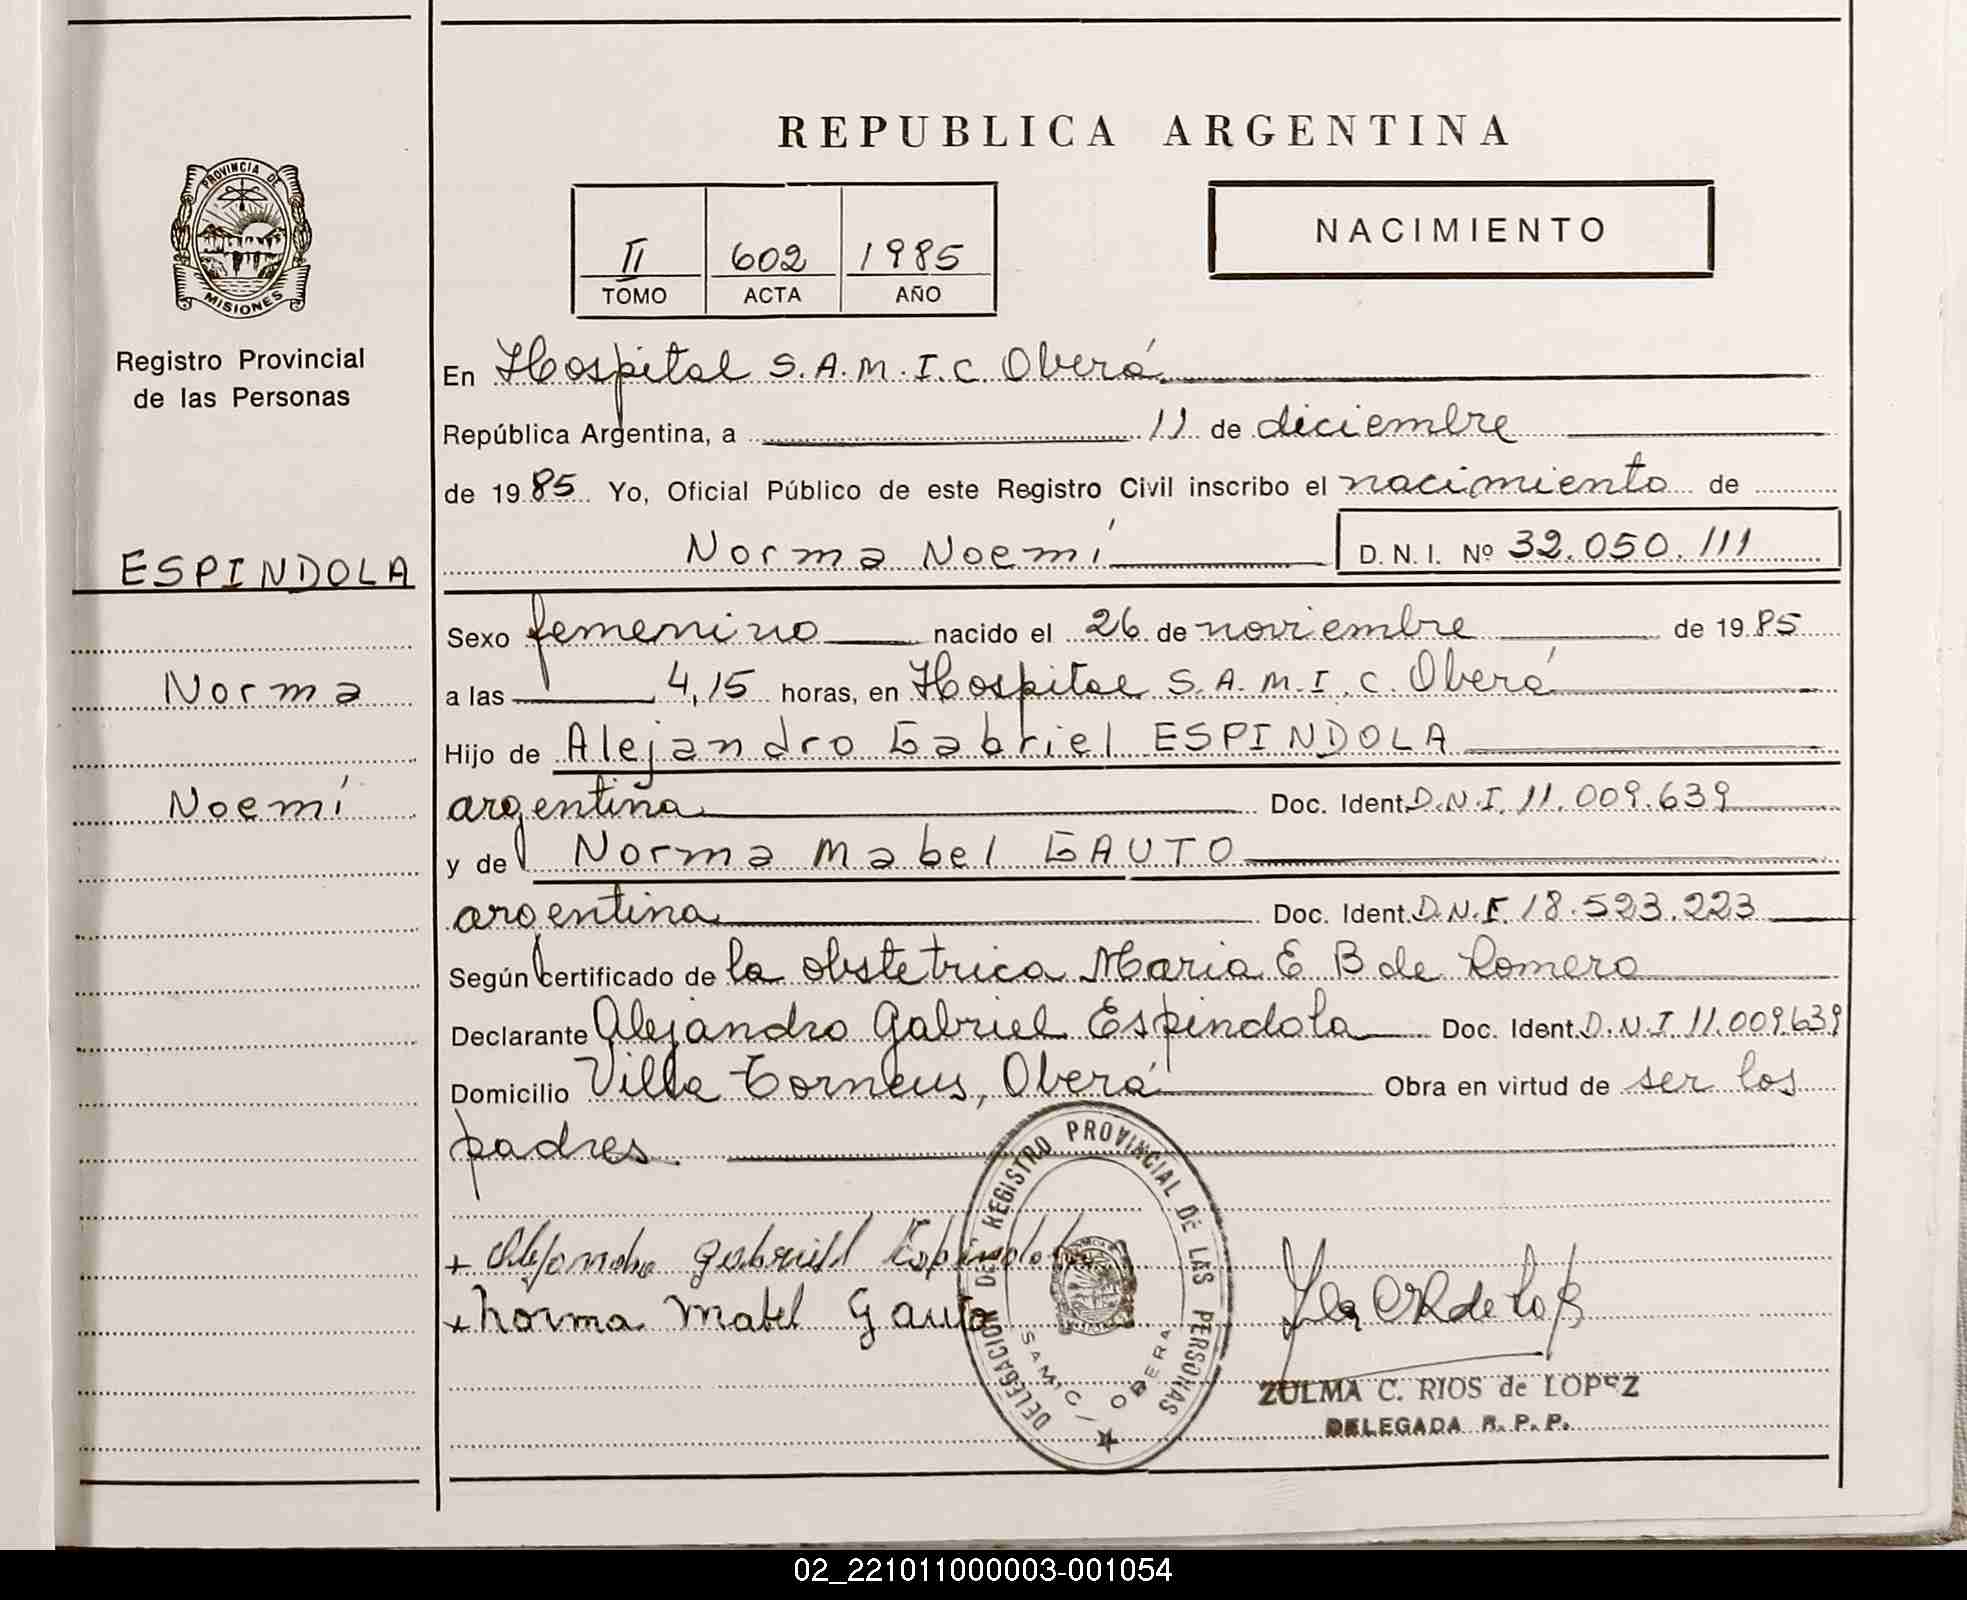 REPUBLICA ARGENTINA
PROVINCIA DE
MISIONES
Registro Provincial
de las Personas
II 602 1985
TOMO ACTA AÑO
NACIMIENTO
En Hospital S.A.M.I.C. Oberá
República Argentina, a 11 de diciembre
de 1985 Yo, Oficial Público de este Registro Civil inscribo el nacimiento de
Norma Noemí D. N. I. Nº 32.050.111
ESPINDOLA
Norma
Noemí
Sexo femenino nacido el 26 de noviembre de 1985
a las 4,15 horas, en Hospital S.A.M.I.C. Oberá
Hijo de Alejandro Gabriel ESPINDOLA
argentina Doc. Ident. D.N.I. 11.009.639
y de Norma Mabel GAUTO
argentina Doc. Ident. D.N.I. 18.523.223
Según certificado de la obstetrica Maria E B de Romero
Declarante Alejandro Gabriel Espindola Doc. Ident. D.N.I 11.009.639
Domicilio Villa, Oberá Obra en virtud de ser los
padres
+ Alejandro Gabriel Espindola
+ Norma Mabel Gauto
DELEGACION DEL REGISTRO PROVINCIAL DE LAS PERSONAS
SAMIC / OBERA
ZULMA C. RIOS de LOPEZ
DELEGADA R. P. P.
02_221011000003-001054